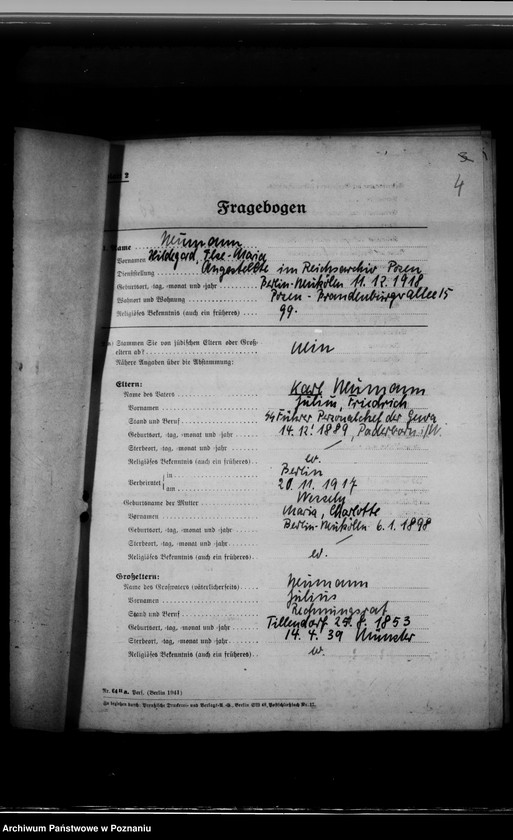 2
4
Fragebogen
Name Neumann
Vornamen Hildegard, Else-Maria
Dienststellung Angestellte im Reichsarchiv Posen
Geburtsort, -tag, -monat und -jahr Berlin-Neukölln 11.12.1918
Wohnort und Wohnung Posen - Brandenburger Allee 15
Religiöses Bekenntnis (auch ein früheres) gg.
a) Stammen Sie von jüdischen Eltern oder Groß-
eltern ab? nein
Nähere Angaben über die Abstammung:
Eltern:
Name des Vaters Karl Neumann
Vornamen Julius, Friedrich
Stand und Beruf SS Führer Personalchef der
Geburtsort, -tag, -monat und -jahr 14.12.1889, Paderborn i/W.
Sterbeort, -tag, -monat und -jahr /
Religiöses Bekenntnis (auch ein früheres) ev.
Verheiratet in Berlin
am 20.11.1917
Geburtsname der Mutter Wessely
Vornamen Maria, Charlotte
Geburtsort, -tag, -monat und -jahr Berlin-Neukölln 6.1.1898
Sterbeort, -tag, -monat und -jahr /
Religiöses Bekenntnis (auch ein früheres) ev.
Großeltern:
Name des Großvaters (väterlicherseits) Neumann
Vornamen Julius
Stand und Beruf Rechnungsrat
Geburtsort, -tag, -monat und -jahr Tillendorf 25.8.1853
Sterbeort, -tag, -monat und -jahr 14.4.39 Münster
Religiöses Bekenntnis (auch ein früheres) ev.
Nr. Pers. (Berlin 1941)
Zu beziehen durch: Preußische Druckerei- und Verlags-A.-G., Berlin
Archiwum Państwowe w Poznaniu